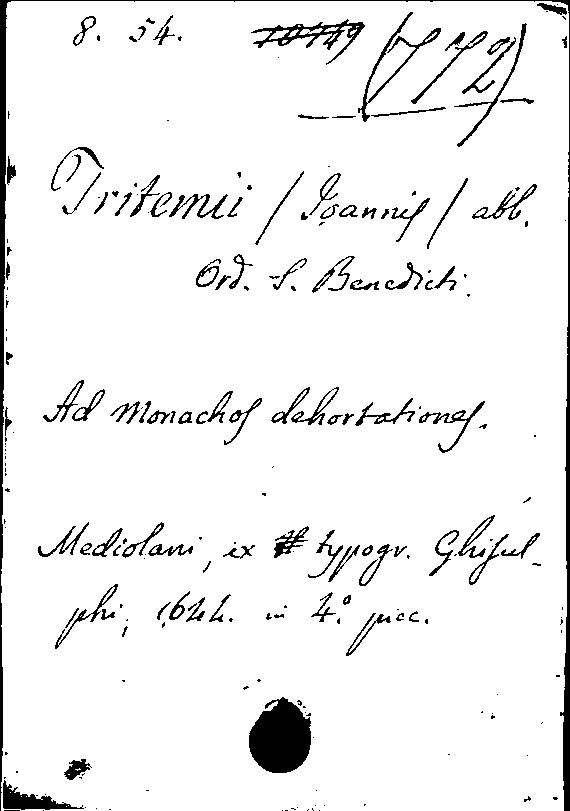 8. 54. 10749 (772)
Tritemii / Ioannis / abb.
Ord. S. Benedicti.
Ad Monachos dehortationes.
Mediolani, ex typogr. Ghisul-
phi, 1644. in 4.° picc.